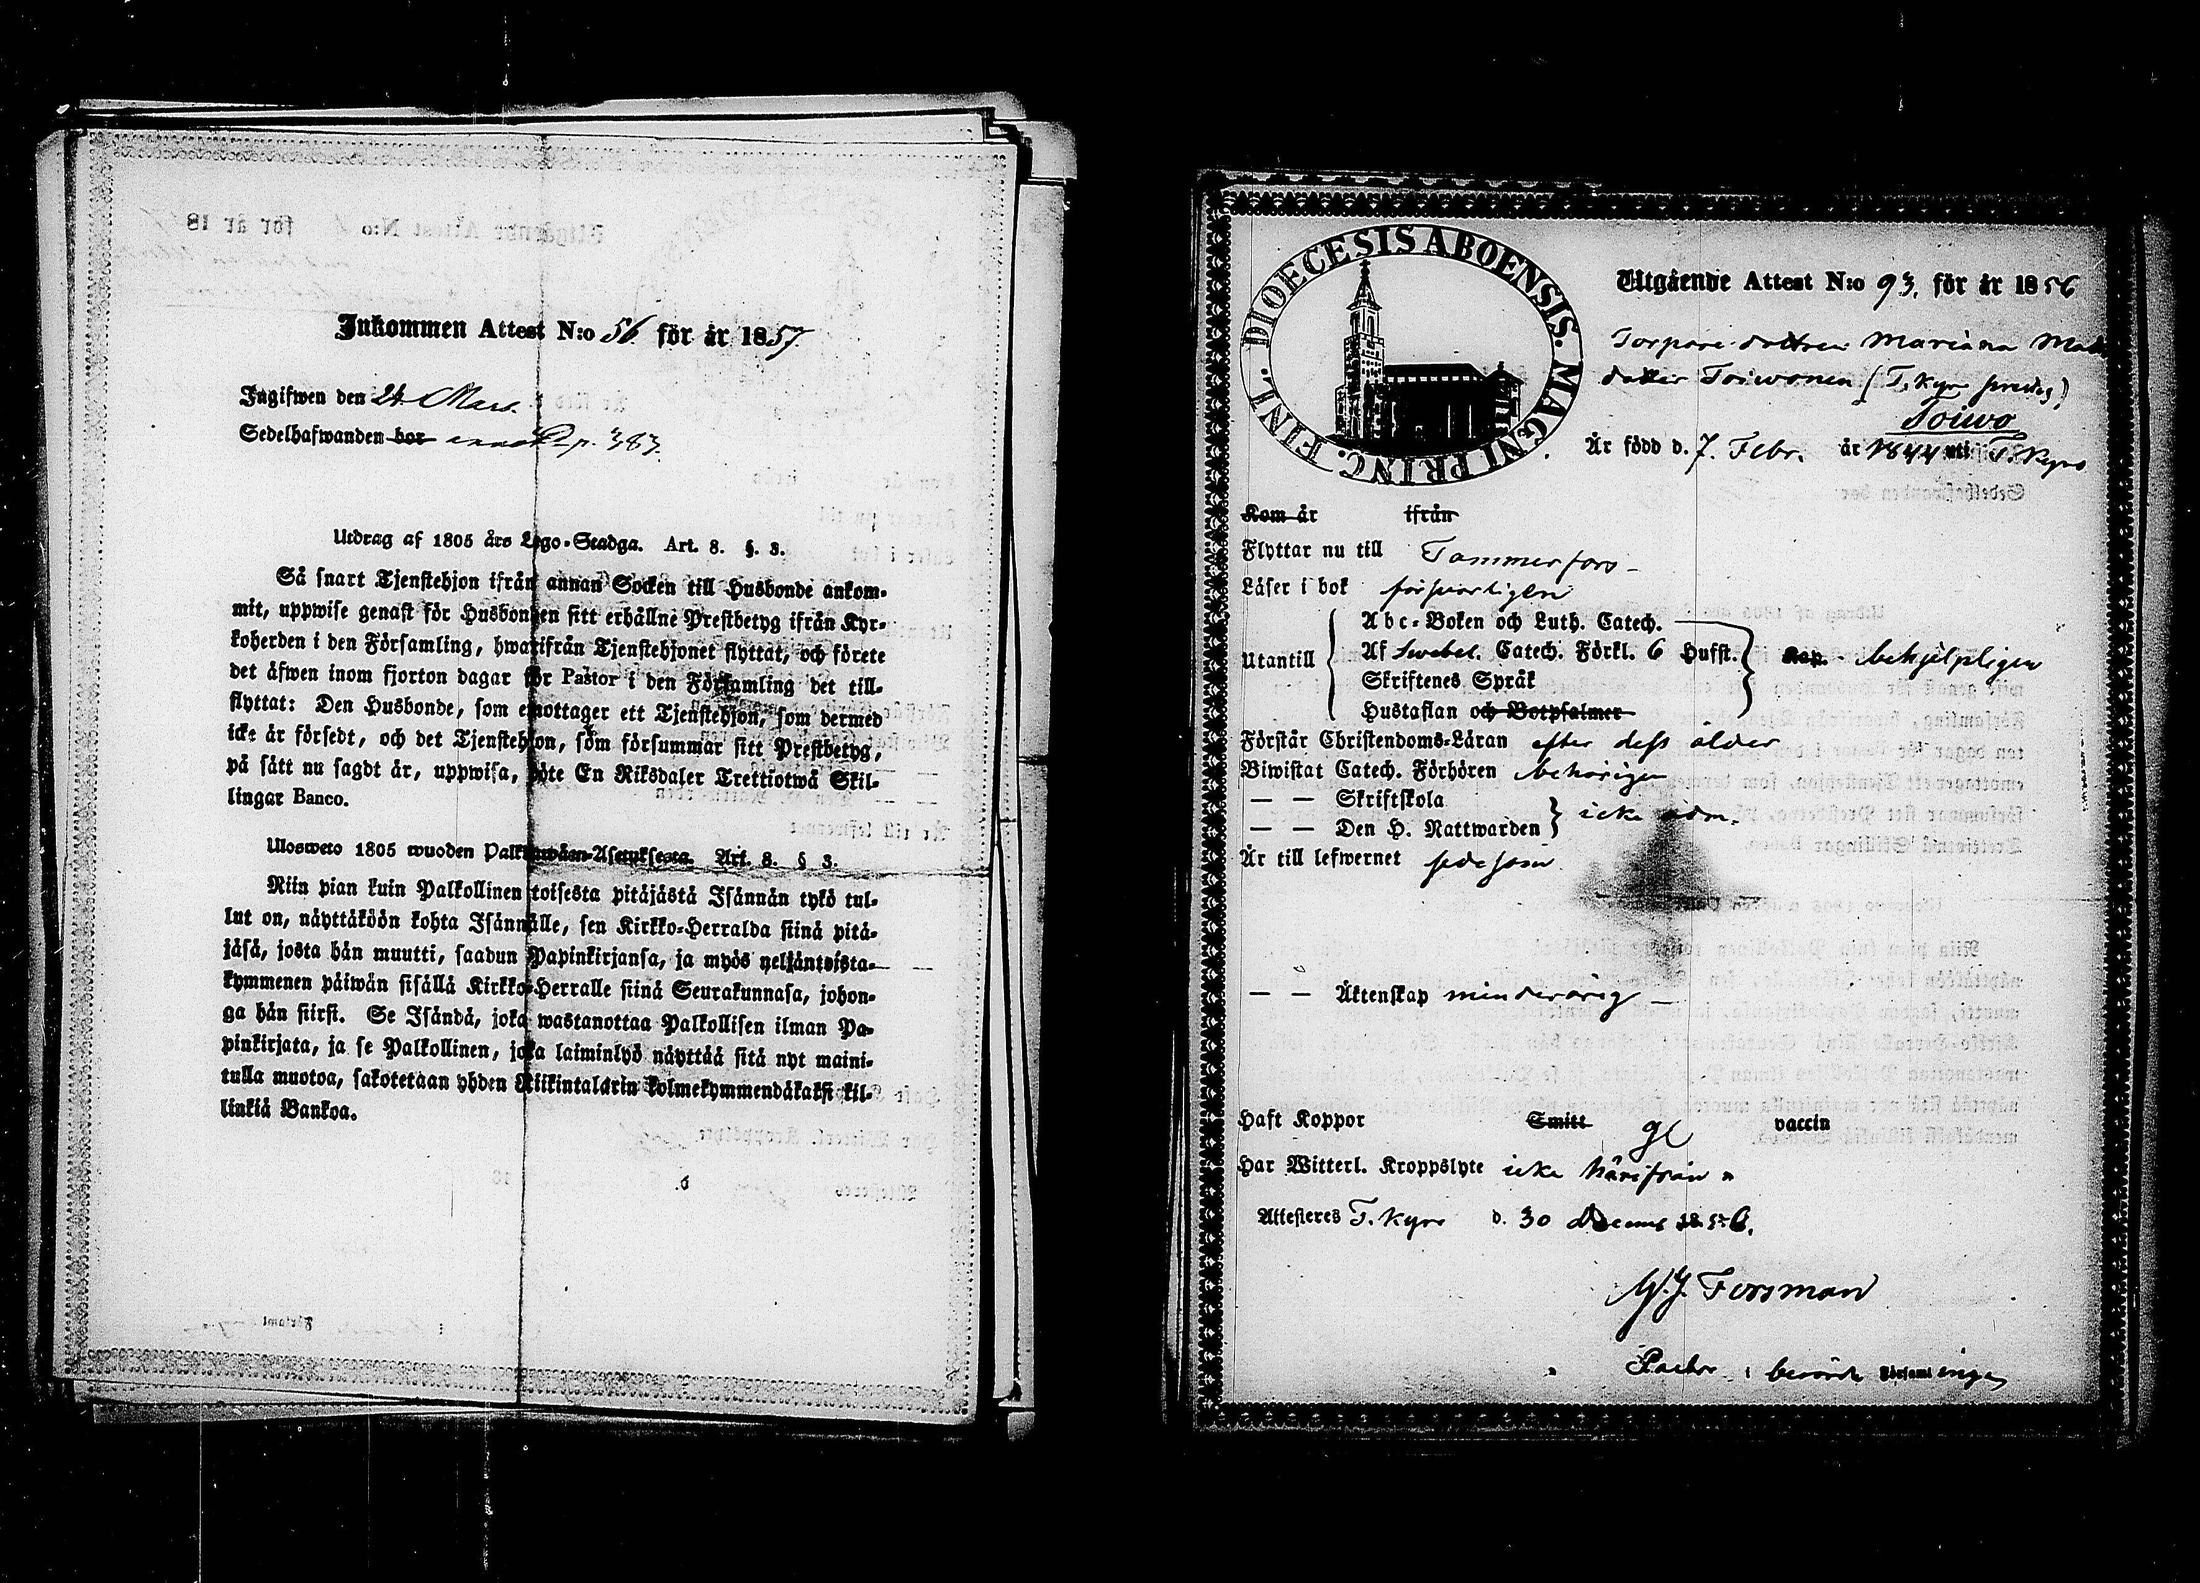 Inkommen Attest N:o 56 för år 1857
Ingifwen den 24 Mars.
Sedelhafwanden bor p. 383.
Utdrag af 1805 års Lego-Stadga. Art. 8. §. 3.
Så snart Tjenstehjon ifrån annan Socken till Husbonde ankom-
mit, uppwise genast för Husbonden sitt erhållne Prestbetyg ifrån Kyr-
koherden i den Församling, hwarifrån Tjenstehjonet flyttat, och förete
det äfwen inom fjorton dagar för Pastor i den Församling det till-
flyttat: Den Husbonde, som emottager ett Tjenstehjon, som dermed
icke är försedt, och det Tjenstehjon, som försummar sitt Prestbetyg,
på sätt nu sagdt är, uppwisa, böte En Riksdaler Trettiotwå Skil-
lingar Banco.
Ulosweto 1805 wuoden Palkkawäen-Asetuksesta. Art. 8. § 3.
Niin pian kuin Palkollinen toisesta pitäjästä Isännän tykö tul-
lut on, näyttäköön kohta Isännälle, sen Kirkko-Herralda siinä pitä-
jäsä, josta hän muutti, saadun Papinkirjansa, ja myös neljäntoista-
kymmenen päiwän sisällä Kirkko-Herralle siinä Seurakunnasa, johon-
ga hän siirsi. Se Isändä, joka wastanottaa Palkollisen ilman Pa-
pinkirjata, ja se Palkollinen, joka laiminlyö näyttää sitä nyt maini-
tulla muotoa, sakotetaan yhden Riikintalarin kolmekymmendäkaksi kil-
linkiä Bankoa.
DIOECESIS ABOENSIS. MAGNI PRINC. FINL.
Utgående Attest N:o 93. för år 1856
Torpare dottren Mariana Mats
dotter Toiwonen (T. kyro
Toiwo
Är född d. 7. Febr. år 1844 uti T. kyro
Kom år ifrån
Flyttar nu till Tammerfors
Läser i bok försvarligen
Utantill
Abc-Boken och Luth. Catech.
Af Swebel. Catech. Förkl. 6 Hufst.
Skriftenes Språk
Hustaflan och Botpsalmer
Kap. behjelpligen
Förstår Christendoms-Läran efter dess ålder
Biwistat Catech. Förhören behörigen
— — Skriftskola
— — Den H. Nattwarden
icke adm.
Är till lefwernet sedesam
— — Äktenskap minderårig
Haft Koppor Smitt gl vaccin
Har Witterl. Kroppslyte icke härifrån
Attesteres T. kyro d. 30 Decemb 1856.
Forsman
Pastor i berörde Församlingen